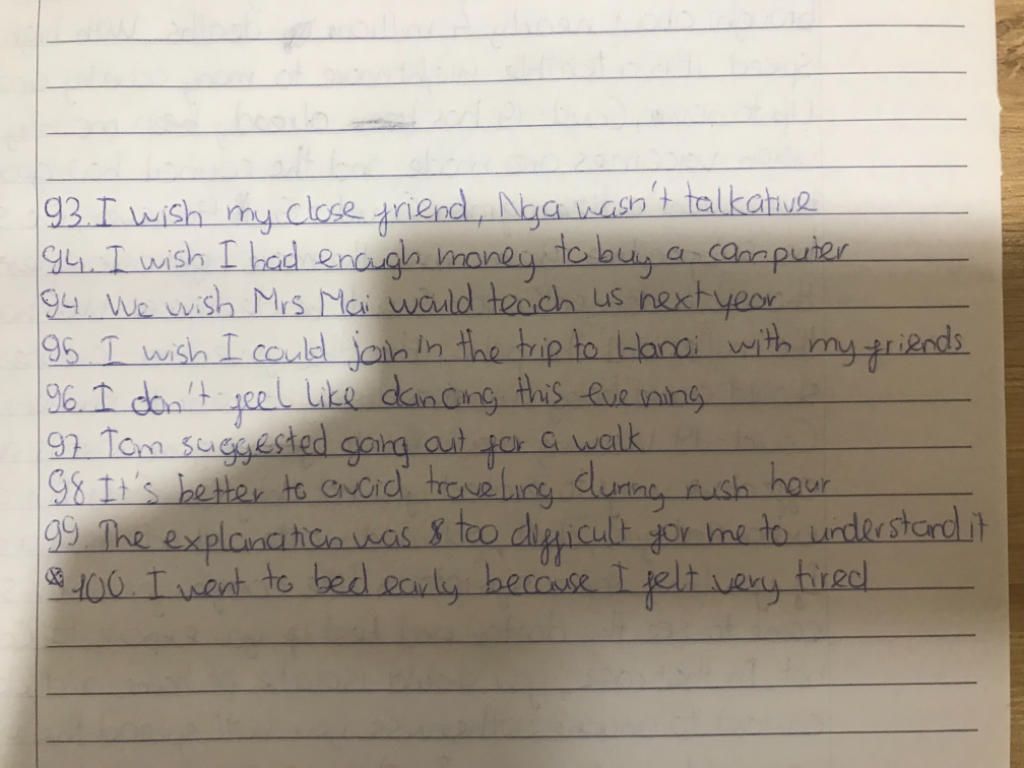 93. I wish my close friend, Nga wasn't talkative
94. I wish I had enough money to buy a computer
94. We wish Mrs Mai would teach us next year
95. I wish I could join in the trip to Hanoi with my friends
96. I don't feel like dancing this evening
97. Tom suggested going out for a walk
98 It's better to avoid traveling during rush hour
99. The explanation was too difficult for me to understand it
100. I went to bed early because I felt very tired